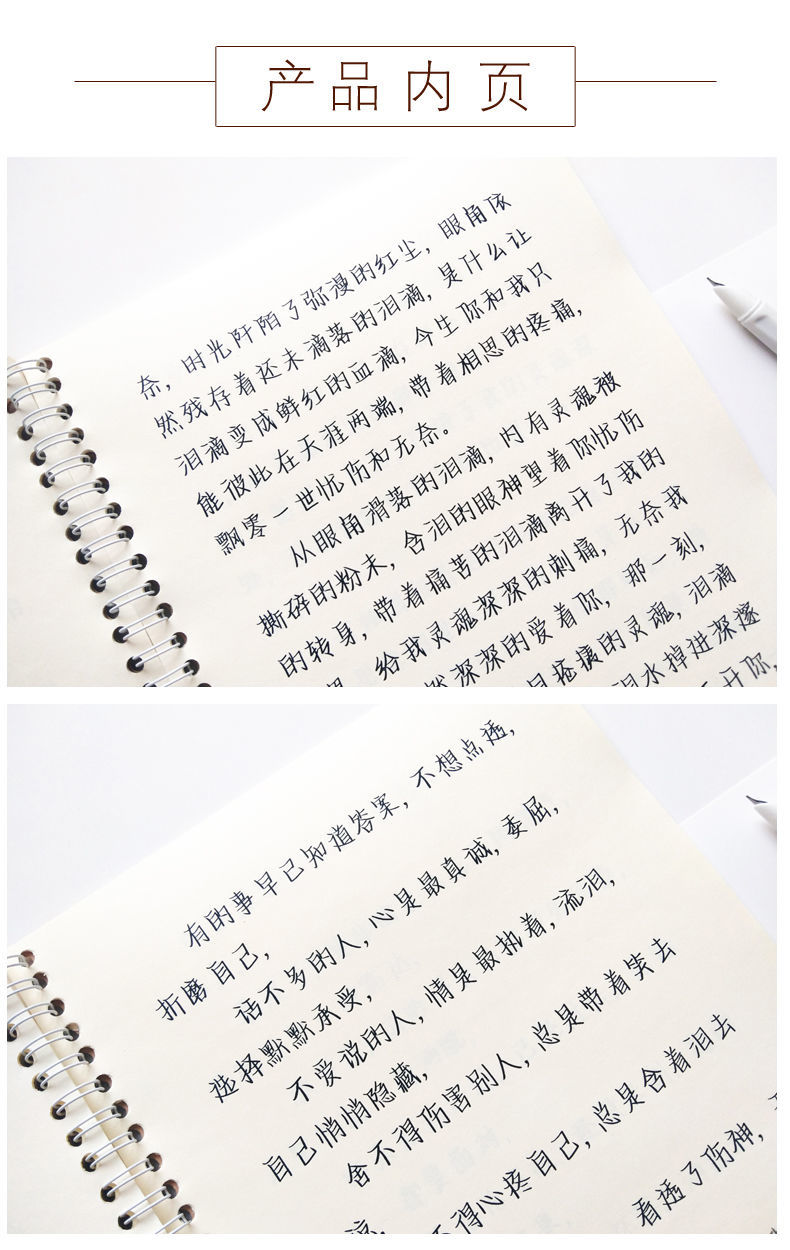 产品内页
奈，时光阡陌了弥漫的红尘，眼角依
然残存着还未滴落的泪滴，是什么让
泪滴变成鲜红的血滴，今生你和我只
能彼此在天涯两端，带着相思的疼痛，
飘零一世忧伤和无奈。
从眼角滑落的泪滴，内有灵魂被
撕碎的粉末，含泪的眼神望着你忧伤
的转身，带着痛苦的泪滴离开了我的
给我灵魂深深的刺痛，无奈我
然深深的爱着你，那一刻，
疮痍的灵魂，泪滴
泪水掉进深邃
开你，
有的事早已知道答案，不想点透，
折磨自己，
话不多的人，心是最真诚，委屈，
选择默默承受，
不爱说的人，情是最执着，流泪，
自己悄悄隐藏，
舍不得伤害别人，总是带着笑去
不得心疼自己，总是含着泪去
看透了伤神，